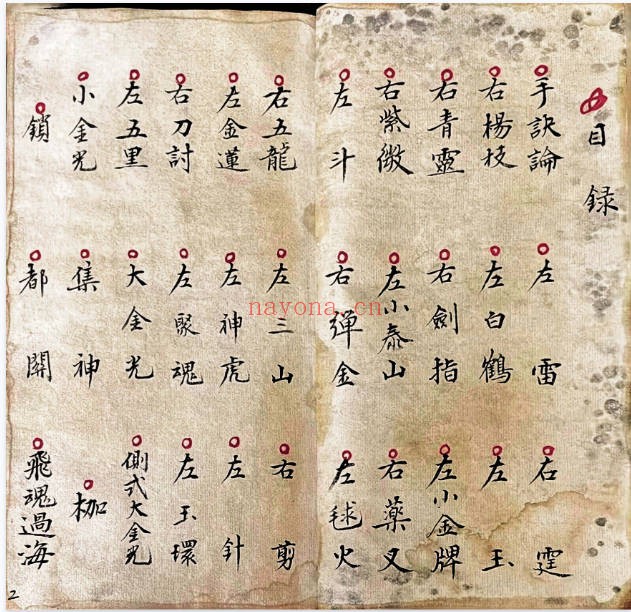 目錄
手訣論 左雷 右霆
右楊枝 左白鶴 左玉
右青靈 右劍指 左小金牌
右紫微 左小泰山 右藥叉
左斗 右彈金 左毬火
右五龍 左三山 右剪
左金蓮 左神虎 左針
右刀討 左聚魂 左玉環
左五里 大金光 側式大金光
小金光 集神 枷
鎖 都開 飛魂過海
nayona.cn
2